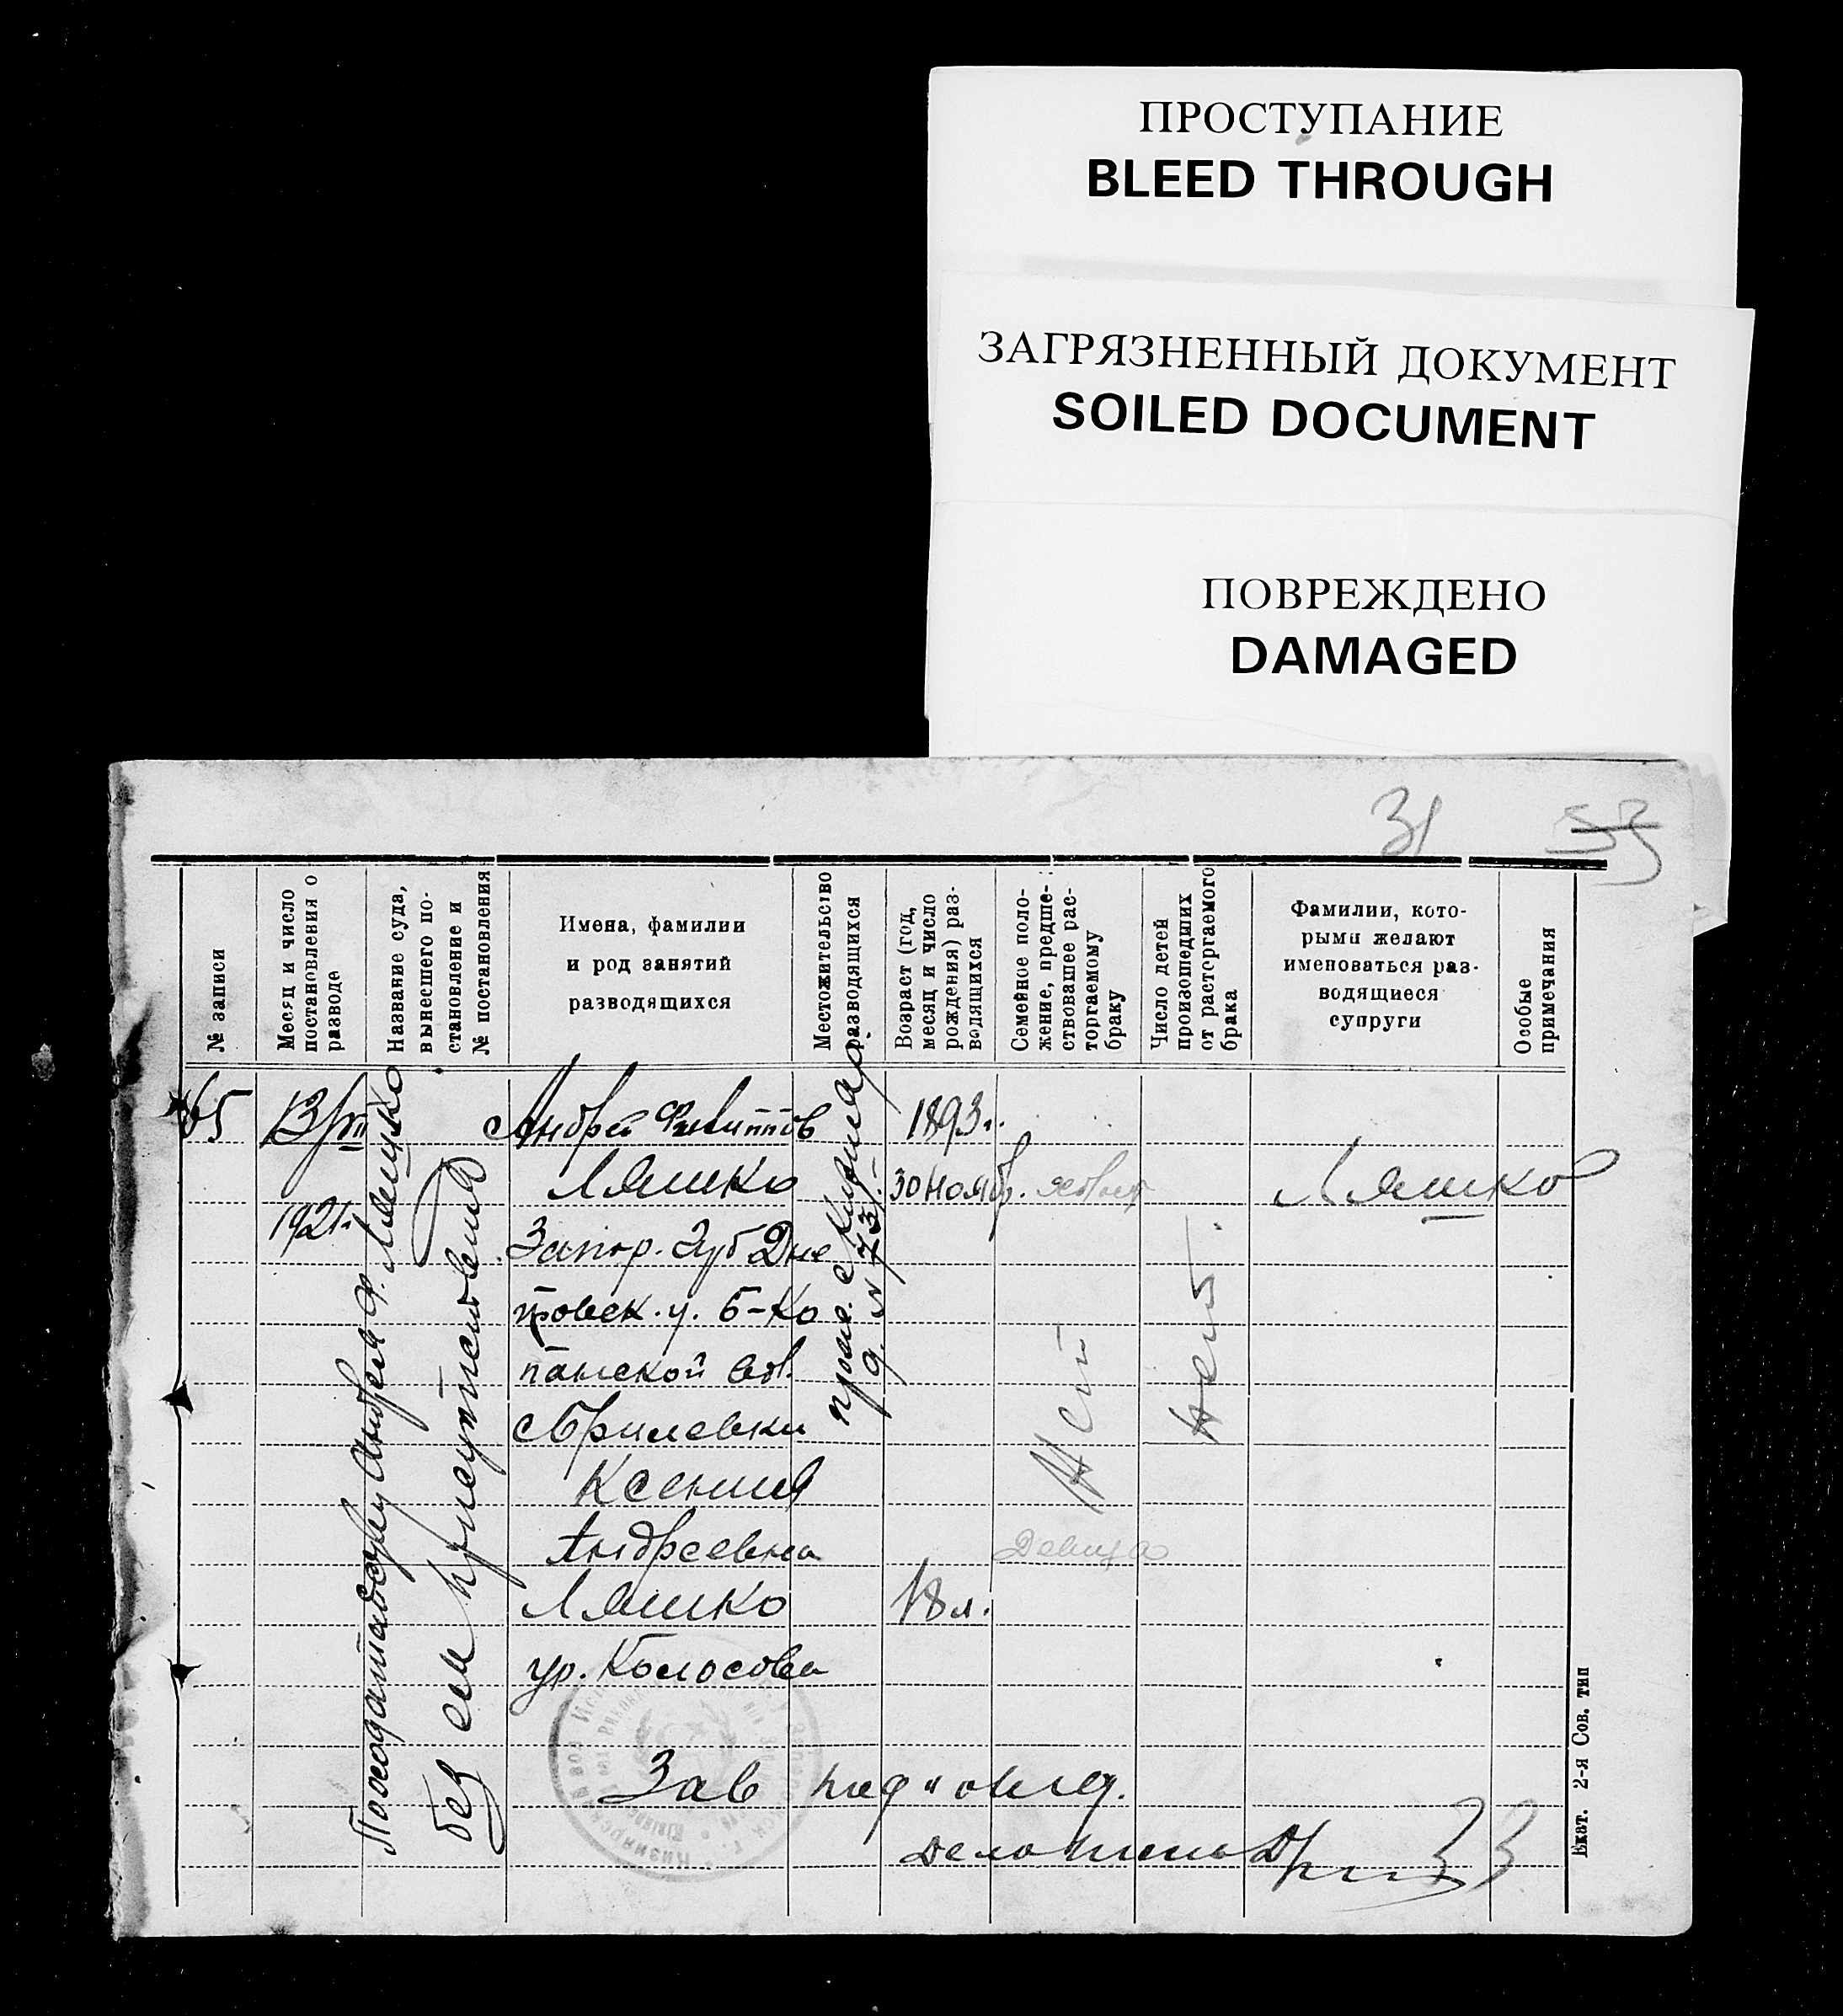 ПРОСТУПАНИЕ
BLEED THROUGH
ЗАГРЯЗНЕННЫЙ ДОКУМЕНТ
SOILED DOCUMENT
ПОВРЕЖДЕНО
DAMAGED
31
№ записи
Месяц и число
постановления о
разводе
Название суда,
вынесшего по-
становление и
№ постановления
Имена, фамилии
и род занятий
разводящихся
Местожительство
разводящихся
Возраст (год,
месяц и число
рождения) раз-
водящихся
Семейное поло-
жение, предше-
ствовавшее рас-
торгаемому
браку
Число детей
происшедших
от расторгаемого
брака
Фамилии, кото-
рыми желают
именоваться раз-
водящиеся
супруги
Особые
примечания
65
1921г.
Андрей Филиппов
Ляшко
Запор. Губ Дне
провск. у. Б-Ко
панской вол.
с Брилевки
Ксения
Андреевна
Ляшко
ур. Колосова
Андрея Ф. Ляшко
без ея присутствия
№ 73
1893г.
30 Ноябр.
18 л.
Нет
Девица
Нет.
Ляшко
Зав
Екат. 2-я Сов. тип